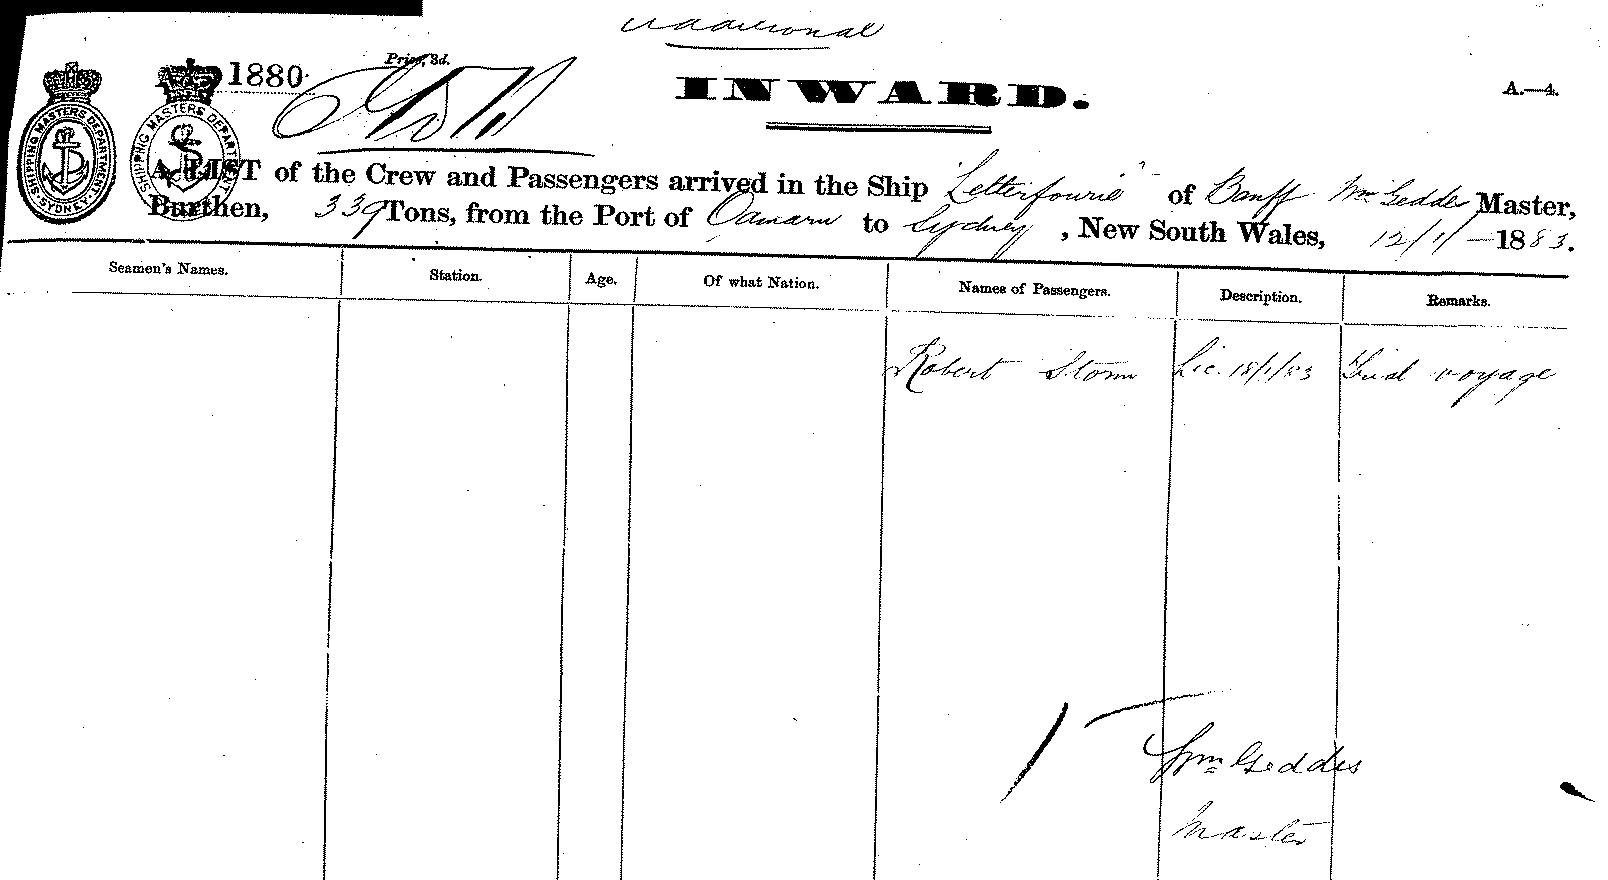 Additional
Price, 3d.
1880
INWARD.
A.—4.
SHIPPING MASTERS DEPARTMENT SYDNEY
SHIPPING MASTERS DEPARTMENT
A LIST of the Crew and Passengers arrived in the Ship "Letterfourie" of Banff Wm Geddes Master,
Burthen, 339 Tons, from the Port of Oamaru to Sydney, New South Wales, 12/1/—1883.
Seamen's Names. Station. Age. Of what Nation. Names of Passengers. Description. Remarks.
Robert Storm Lic. 18/1/83 voyage
1
Wm Geddes
Master